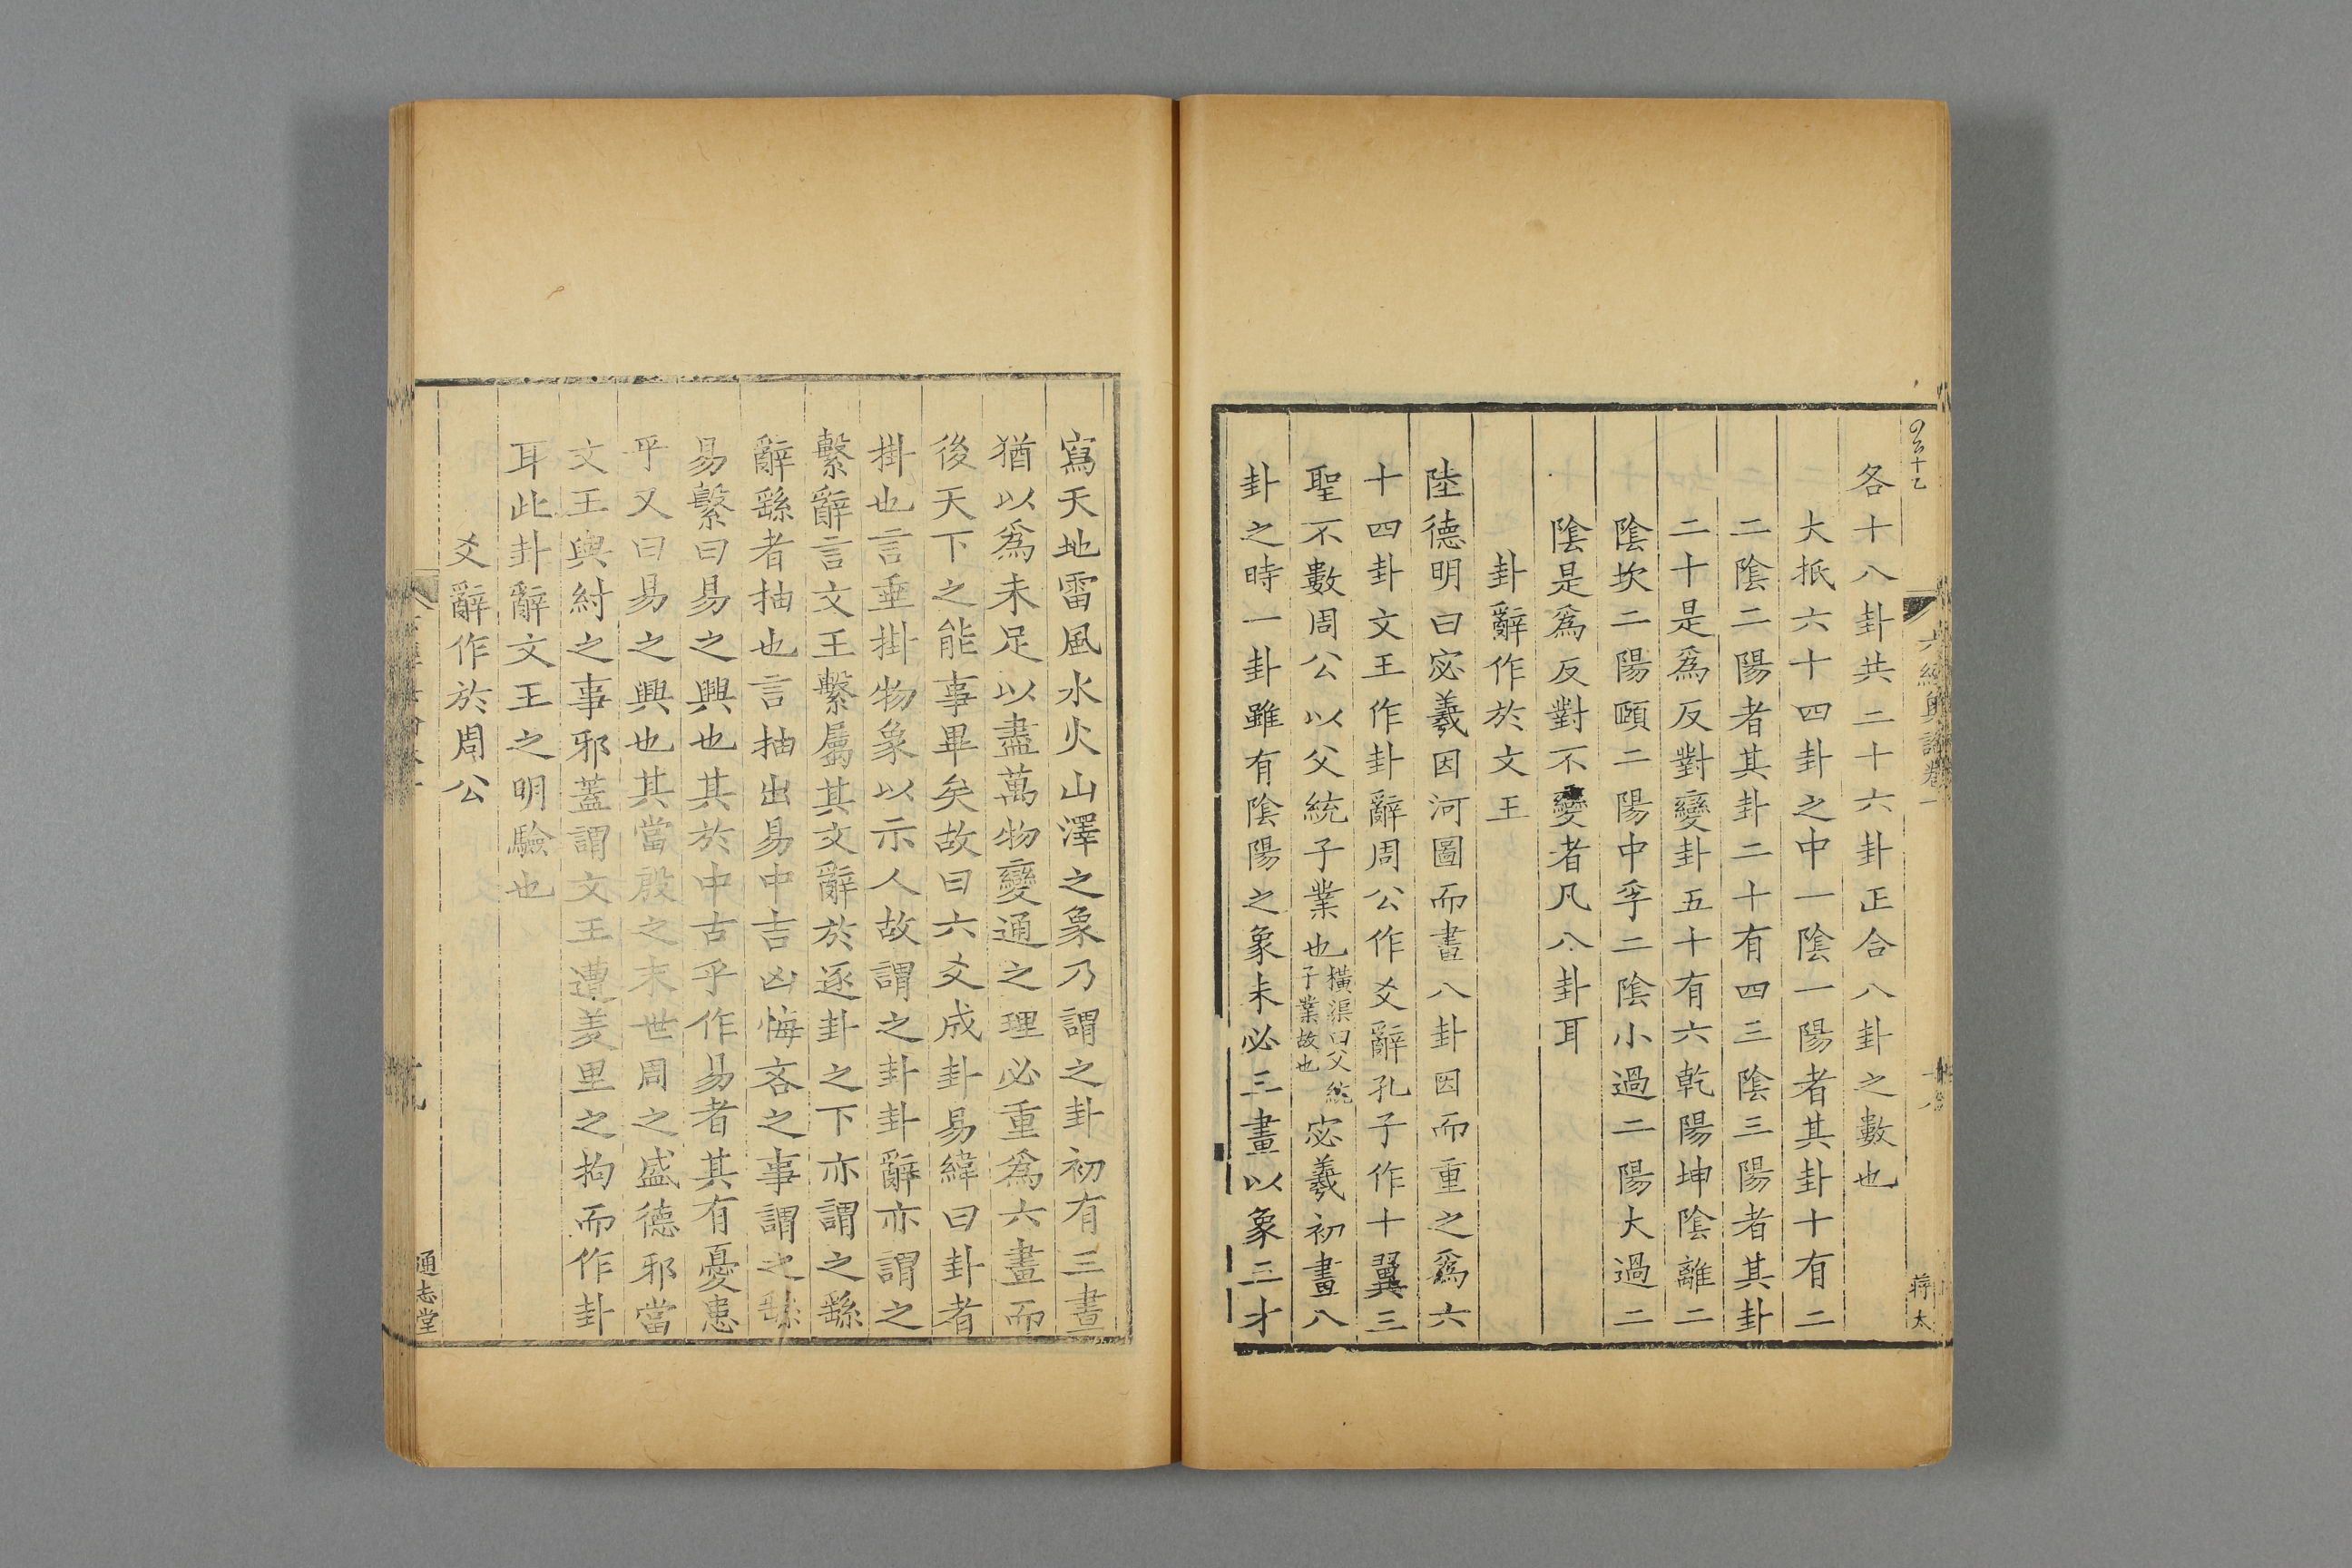 各十八卦共二十六卦正合八卦之數也
大抵六十四卦之中一陰一陽者其卦十有二
二陰二陽者其卦二十有四三陰三陽者其卦
二十是爲反對變卦五十有六乾陽坤陰離二
陰坎二陽頤二陽中孚二陰小過二陽大過二
陰是爲反對不變者凡八卦耳
卦辭作於文王
陸德明曰宓羲因河圖而畫八卦因而重之爲六
十四卦文王作卦辭周公作爻辭孔子作十翼三
聖不數周公以父統子業也橫渠曰父統子業故也宓羲初畫八
卦之時一卦雖有陰陽之象未必三畫以象三才
寫天地雷風水火山澤之象乃謂之卦初有三畫
猶以爲未足以盡萬物變通之理必重爲六畫而
後天下之能事畢矣故曰六爻成卦易緯曰卦者
掛也言垂掛物象以示人故謂之卦卦辭亦謂之
繫辭言文王繫屬其文辭於逐卦之下亦謂之繇
辭繇者抽也言抽出易中吉凶悔吝之事謂之繇
易繫曰易之興也其於中古乎作易者其有憂患
乎又曰易之興也其當殷之末世周之盛德邪當
文王與紂之事邪蓋謂文王遭羑里之拘而作卦
耳此卦辭文王之明驗也
爻辭作於周公
六經奧論卷一
蔣太
通志堂